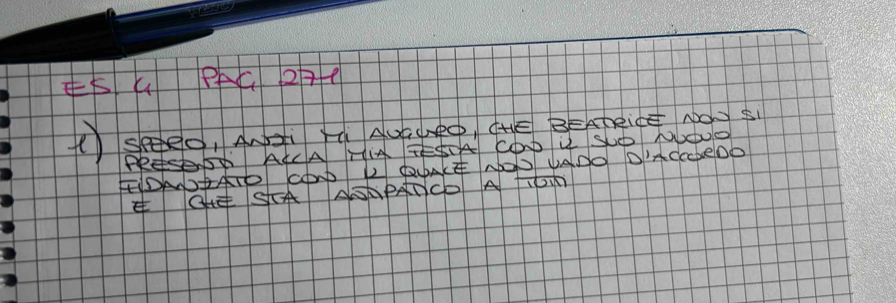 ES. 4 PAG 271
1) SPERO, ANZI MI AUGURO, CHE BEATRICE NON SI
PRESENTI ALLA MIA FESTA CON IL SUO NUOVO
FIDANZATO CON IL QUALE NON VADO D'ACCORDO
E CHE STA ANTIPATICO A TUTTI